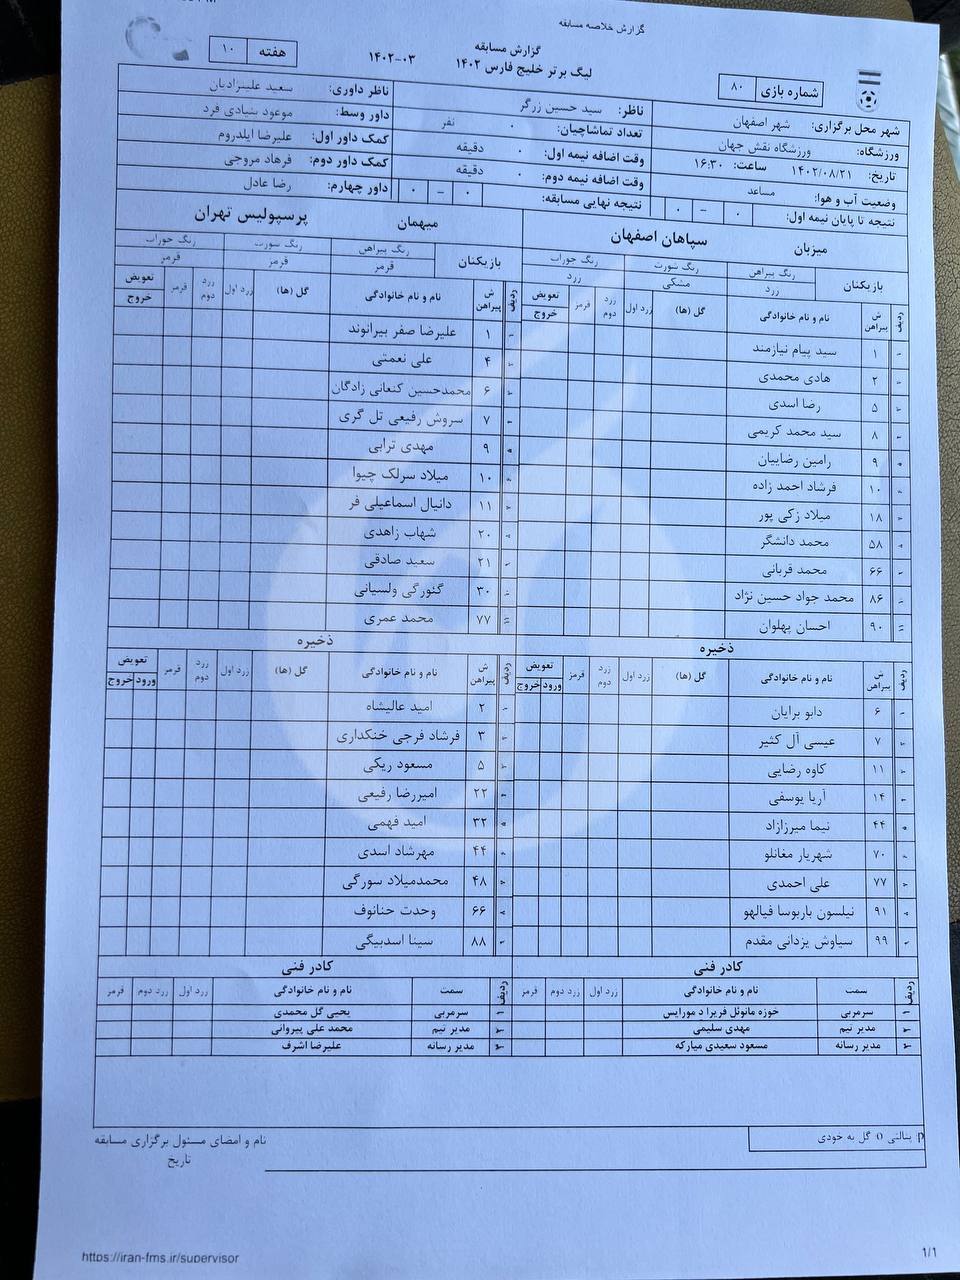 گزارش خلاصه مسابقه
گزارش مسابقه
لیگ برتر خلیج فارس ۱۴۰۲ ۱۴۰۲-۰۳
هفته ۱۰
شماره بازی ۸۰
شهر محل برگزاری: شهر اصفهان
ورزشگاه: ورزشگاه نقش جهان
تاریخ: ۱۴۰۲/۰۸/۲۱ ساعت: ۱۶:۳۰
وضعیت آب و هوا: مساعد
نتیجه تا پایان نیمه اول: ۰ – ۰
ناظر: سید حسین زرگر
تعداد تماشاچیان: ۰ نفر
وقت اضافه نیمه اول: ۰ دقیقه
وقت اضافه نیمه دوم: ۰ دقیقه
نتیجه نهایی مسابقه: ۰ – ۰
ناظر داوری: سعید علینژادیان
داور وسط: موعود بنیادی فرد
کمک داور اول: علیرضا ایلدروم
کمک داور دوم: فرهاد مروجی
داور چهارم: رضا عادل
میزبان سپاهان اصفهان
بازیکنان رنگ پیراهن رنگ شورت رنگ جوراب
زرد مشکی زرد
ردیف ش پیراهن نام و نام خانوادگی گل (ها) زرد اول زرد دوم قرمز تعویض
خروج
۱ سید پیام نیازمند
۲ هادی محمدی
۵ رضا اسدی
۸ سید محمد کریمی
۹ رامین رضاییان
۱۰ فرشاد احمد زاده
۱۸ میلاد زکی پور
۵۸ محمد دانشگر
۶۶ محمد قربانی
۸۶ محمد جواد حسین نژاد
۹۰ احسان پهلوان
ذخیره
ردیف ش پیراهن نام و نام خانوادگی گل (ها) زرد اول زرد دوم قرمز تعویض
ورود خروج
۶ دابو برایان
۷ عیسی آل کثیر
۱۱ کاوه رضایی
۱۴ آریا یوسفی
۴۴ نیما میرزازاد
۷۰ شهریار مغانلو
۷۷ علی احمدی
۹۱ نیلسون باربوسا فیالهو
۹۹ سیاوش یزدانی مقدم
کادر فنی
ردیف سمت نام و نام خانوادگی زرد اول زرد دوم قرمز
۱ سرمربی خوزه مانوئل فریرا د مورایس
۲ مدیر تیم مهدی سلیمی
۳ مدیر رسانه مسعود سعیدی مبارکه
میهمان پرسپولیس تهران
بازیکنان رنگ پیراهن رنگ شورت رنگ جوراب
قرمز قرمز قرمز
ردیف ش پیراهن نام و نام خانوادگی گل (ها) زرد اول زرد دوم قرمز تعویض
خروج
۱ علیرضا صفر بیرانوند
۴ علی نعمتی
۶ محمدحسین کنعانی زادگان
۷ سروش رفیعی تل گری
۹ مهدی ترابی
۱۰ میلاد سرلک چیوا
۱۱ دانیال اسماعیلی فر
۲۰ شهاب زاهدی
۲۱ سعید صادقی
۳۰ گئورگی ولسیانی
۷۷ محمد عمری
ذخیره
ردیف ش پیراهن نام و نام خانوادگی گل (ها) زرد اول زرد دوم قرمز تعویض
ورود خروج
۲ امید عالیشاه
۳ فرشاد فرجی خنکداری
۵ مسعود ریگی
۲۲ امیررضا رفیعی
۳۲ امید فهمی
۴۴ مهرشاد اسدی
۴۸ محمدمیلاد سورگی
۶۶ وحدت حنانوف
۸۸ سینا اسدبیگی
کادر فنی
ردیف سمت نام و نام خانوادگی زرد اول زرد دوم قرمز
۱ سرمربی یحیی گل محمدی
۲ مدیر تیم محمد علی پیروانی
۳ مدیر رسانه علیرضا اشرف
p: پنالتی O گل به خودی
نام و امضای مسئول برگزاری مسابقه
تاریخ
https://iran-fms.ir/supervisor
1/1